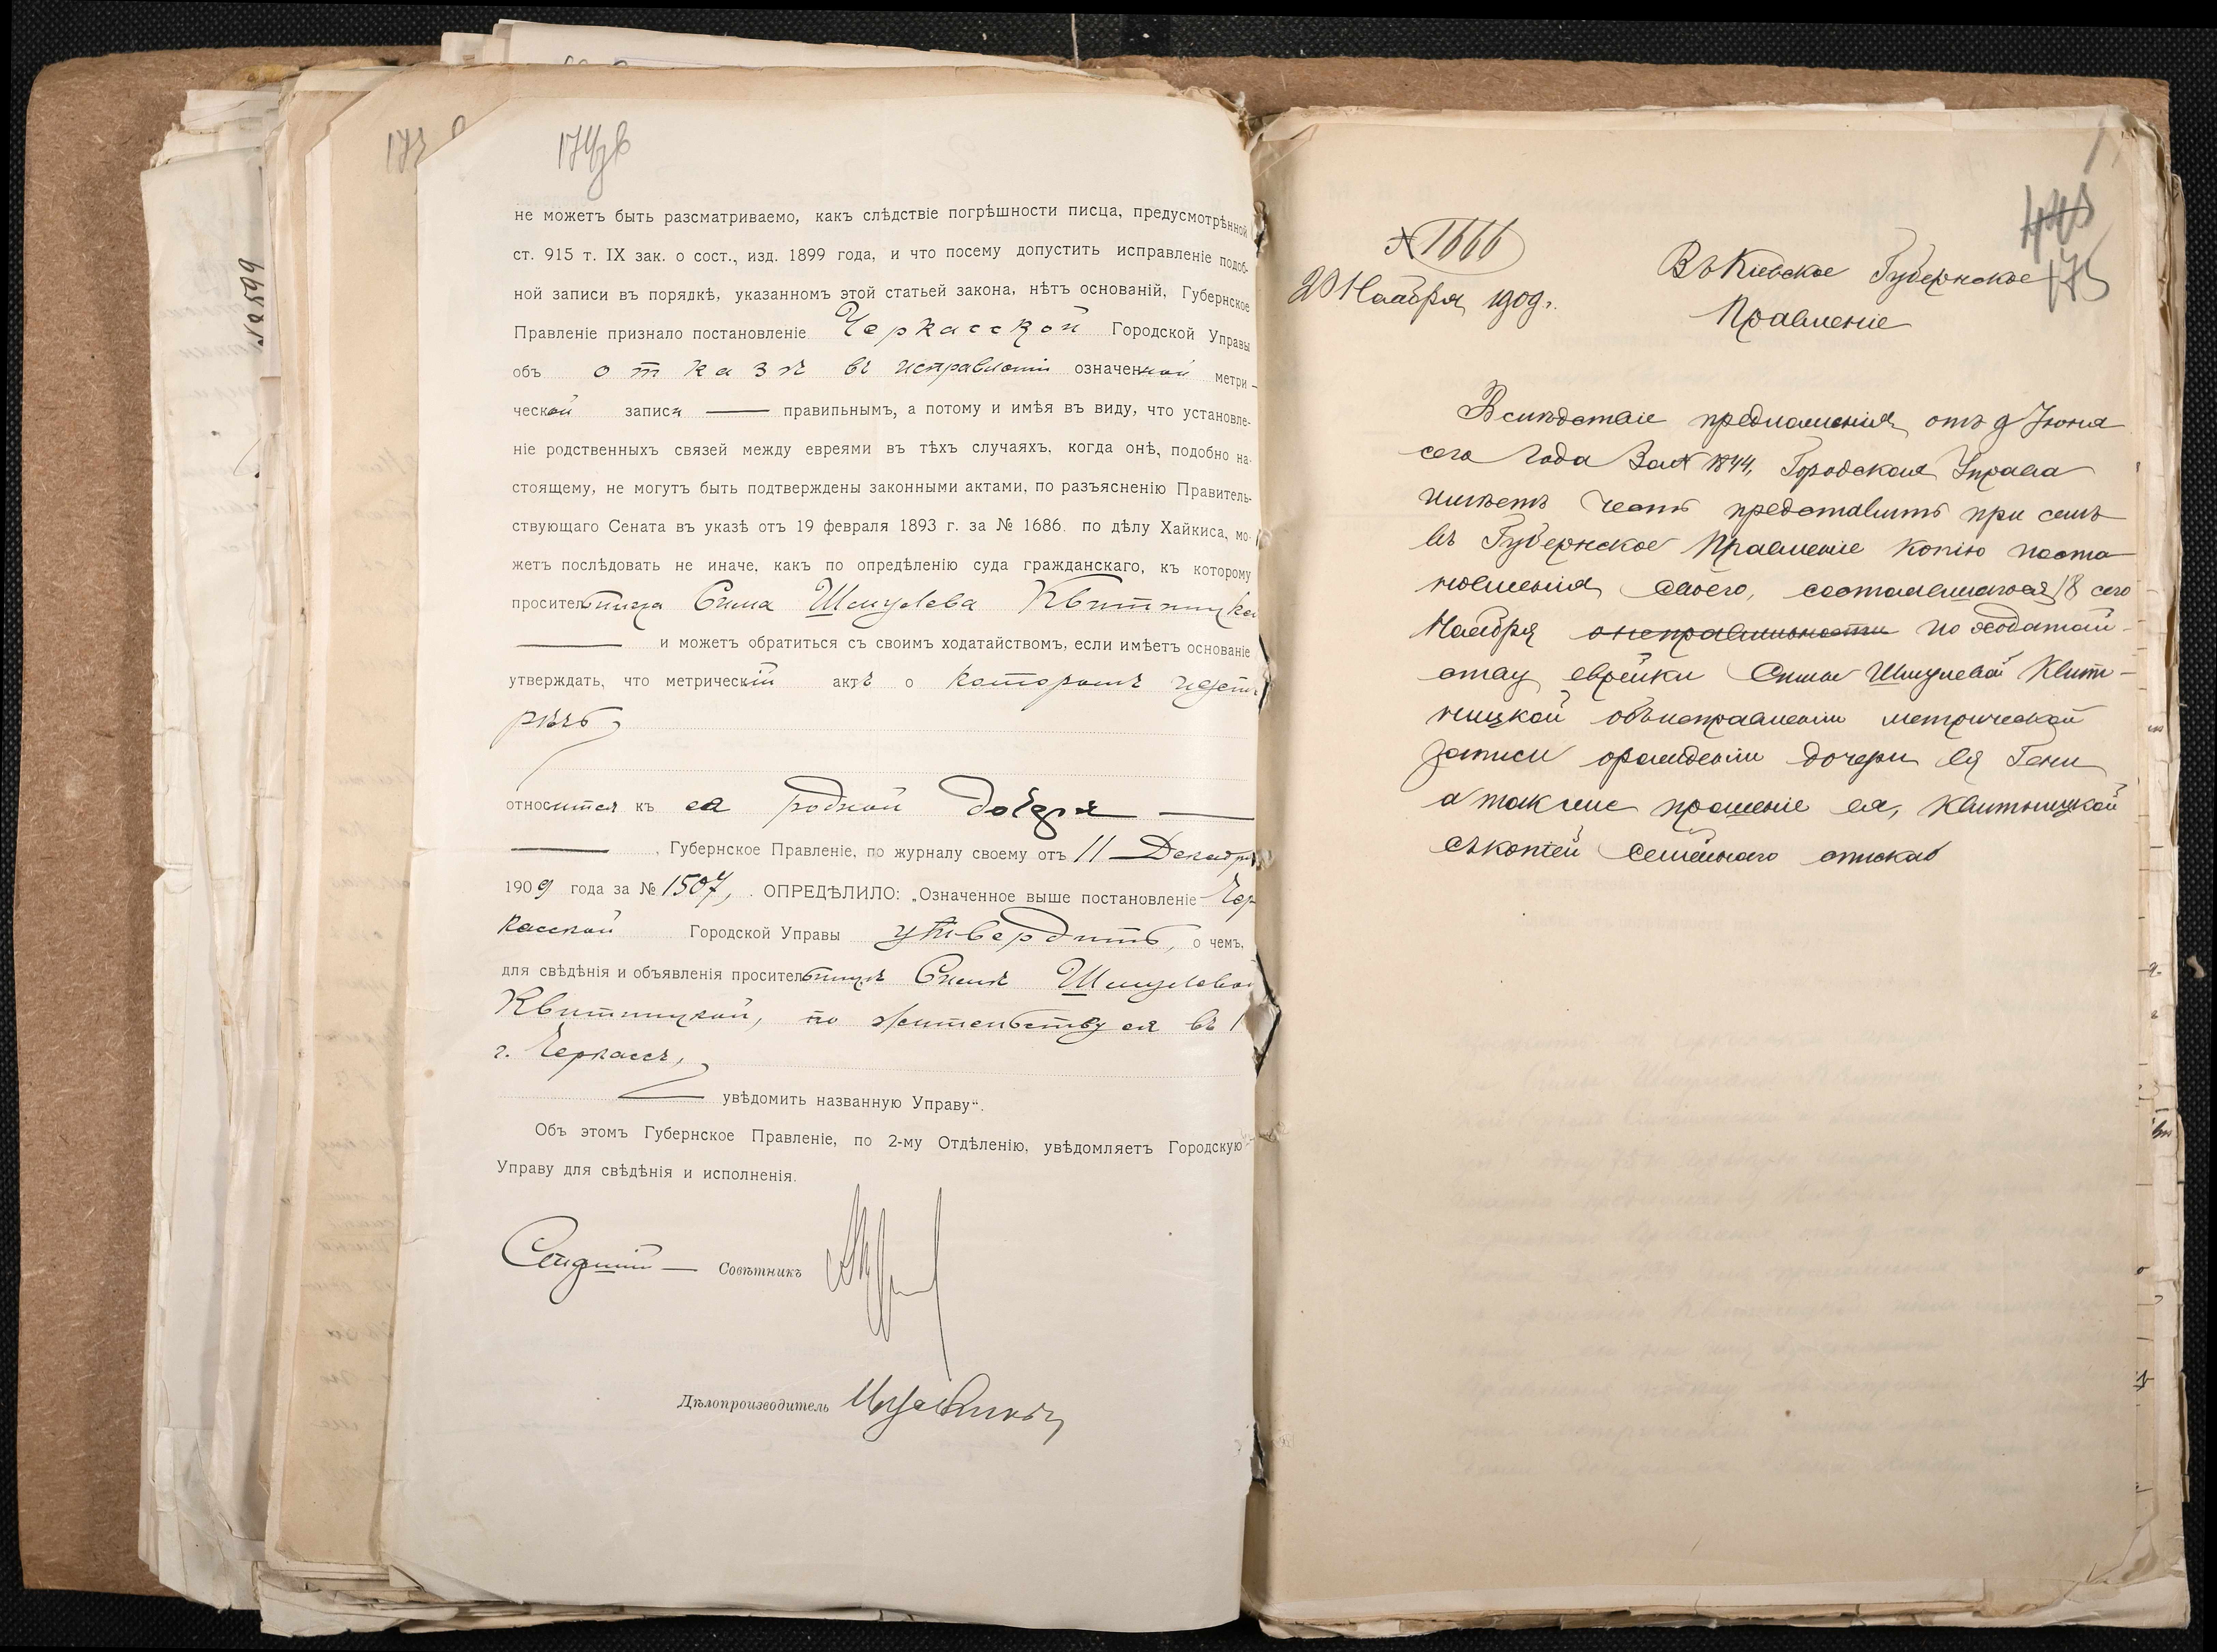 174 об
не можетъ быть разсматриваемо, какъ слѣдствіе погрѣшности писца, предусмотрѣнной
ст. 915 т. IX зак. о сост., изд. 1899 года, и что посему допустить исправленіе подоб-
ной записи въ порядкѣ, указанномъ этой статьей закона, нѣтъ основаній, Губернское
Правленіе признало постановленіе Черкасской Городской Управы
объ отказѣ въ исправленіи означенной метри-
ческой записи — правильнымъ, а потому и имѣя въ виду, что установле-
ніе родственныхъ связей между евреями въ тѣхъ случаяхъ, когда онѣ, подобно на-
стоящему, не могутъ быть подтверждены законными актами, по разъясненію Правитель-
ствующаго Сената въ указѣ отъ 19 февраля 1893 г. за № 1686. по дѣлу Хайкиса, мо-
жетъ послѣдовать не иначе, какъ по опредѣленію суда гражданскаго, къ которому
просительница Сима Шмулева Квитницкая
— и можетъ обратиться съ своимъ ходатайствомъ, если имѣетъ основаніе
утверждать, что метрическій актъ о которомъ идетъ
рѣчь
относится къ ея родной дочери —
— , Губернское Правленіе, по журналу своему отъ 11 Декабря
1909 года за № 1507, . ОПРЕДѢЛИЛО: „Означенное выше постановленіе Чер
касской Городской Управы утвердить, о чемъ,
для свѣдѣнія и объявленія просительницѣ Симѣ Шмулевой
Квитницкой, по жительству ея въ
г. Черкассѣ,
— увѣдомить названную Управу“.
Объ этомъ Губернское Правленіе, по 2-му Отдѣленію, увѣдомляетъ Городскую
Управу для свѣдѣнія и исполненія.
Совѣтникъ
Дѣлопроизводитель
№ 2599
175
№ 1666
20 Ноября 1909 г.
Въ Кіевское Губернское
Правленіе
Вслѣдствіе предложенія отъ 9 Іюня
сего года за № 1844, Городская Управа
имѣетъ честь представить при семъ
въ Губернское Правленіе копію поста
новленія своего, состоявшагося 18 сего
Ноября о неправильности по ходатай-
ству еврейки Симы Шмулевой Квит-
ницкой объ исправленіи метрической
записи о рожденіи дочери ея Гени
а также прошеніе ея, Квитницкой
съ копіей семейнаго списка